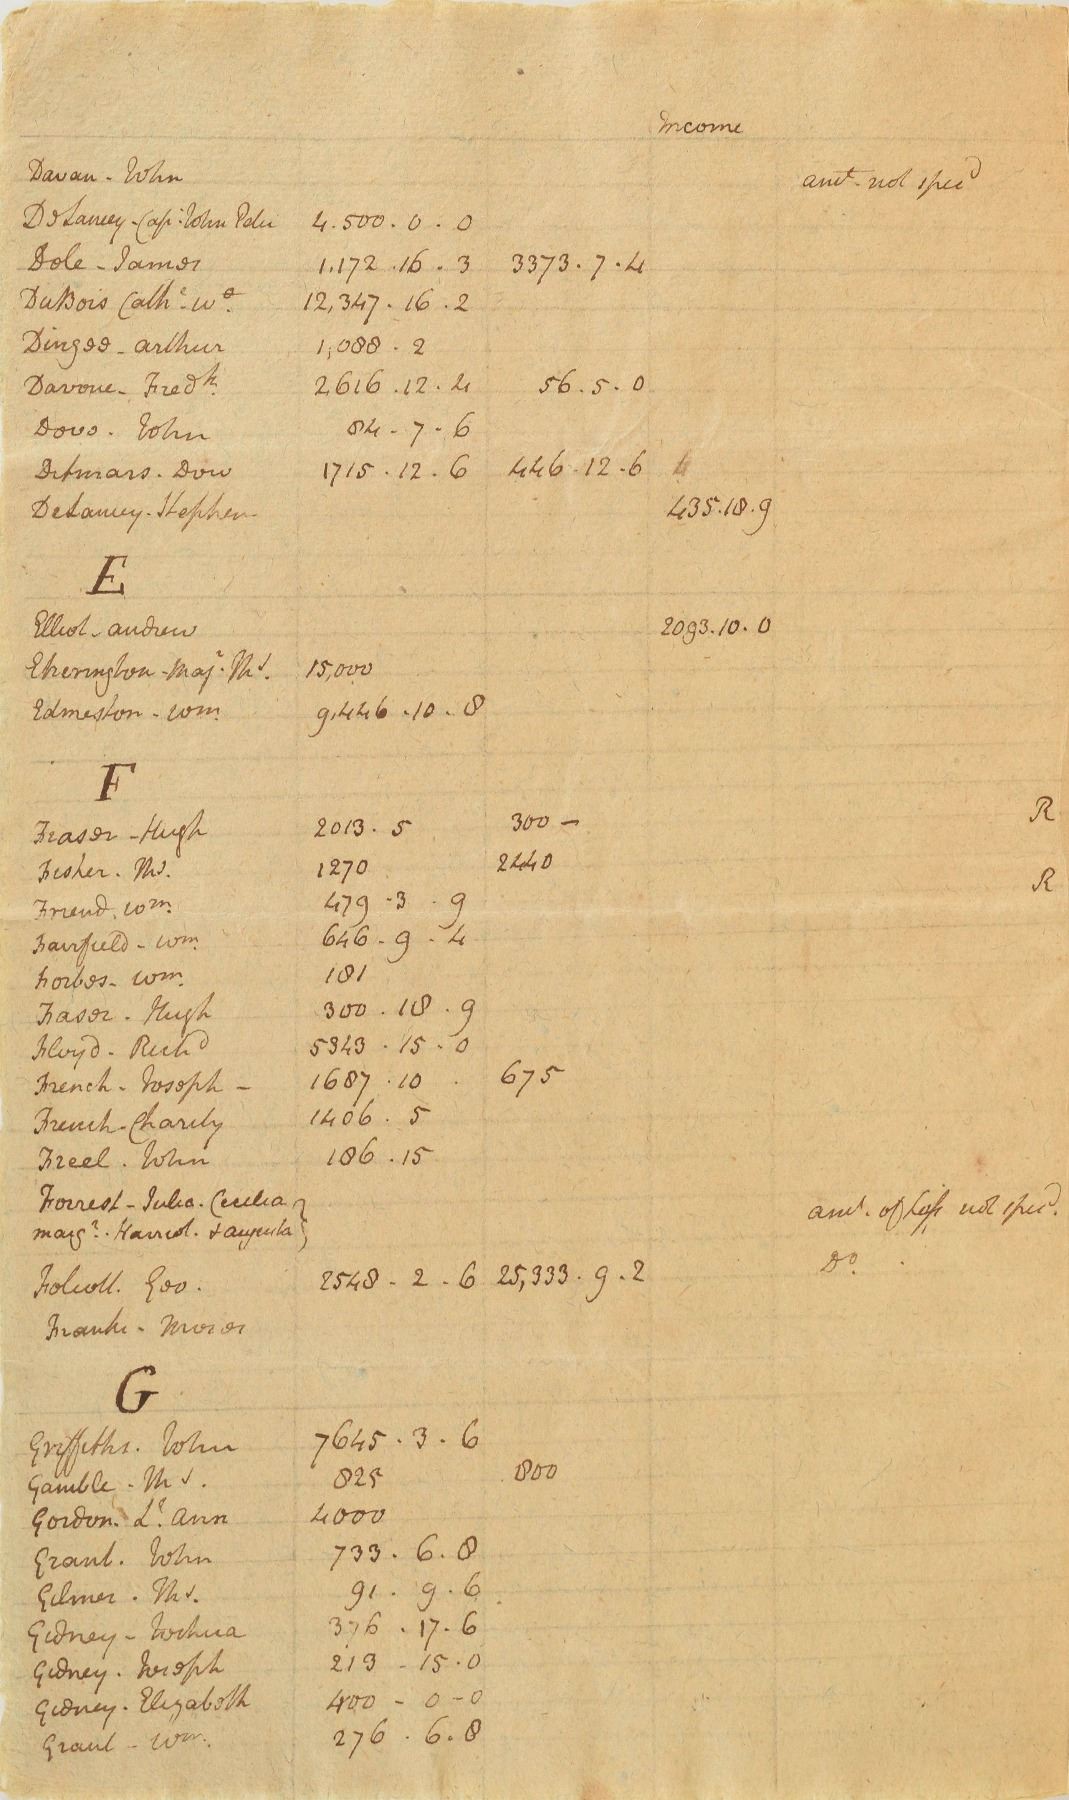 Income
Davan - John amt. not specd
DeLancey - Cap: John Edw 4.500. 0. 0
Dole - James 1.172. 16. 3 3373. 7. 4
DuBois Cathe. wd. 12,347. 16. 2
Dingee - arthur 1,088. 2
Davoue - Fredk. 2616. 12. 4 56. 5. 0
Dove. John 84 - 7 - 6
Ditmars. Dow 1715. 12. 6 446. 12. 6
DeLancey. Stephen 435. 18. 9
E
Elliot - andrew 2093. 10. 0
Etherington - Majr. Ths. 15,000
Edmeston - Wm. 9,446. 10. 8
F
Fraser - Hugh 2013. 5 300 — R
Fisher. Ths. 1270 2440 R
Friend. Wm. 479 - 3. 9
Fairfield - Wm. 646 - 9 - 4
Forbes - Wm. 181
Fraser. Hugh 300. 18. 9
Floyd - Richd 5343. 15. 0
French - Joseph - 1687. 10. 675
French - Charity 1406. 5
Freel. John 186. 15
Forrest - Julia. Cecilia
margt. Harriot. & augusta } amt. of Loss not specd.
Folliott. Geo. 2548 - 2 - 6 25,333. 9. 2 Do.
Franks - Moses
G
Griffiths. John 7645. 3. 6
Gamble - Ths. 825 800
Gordon. Ly. Ann 4000
Grant. John 733. 6. 8
Gilmer. Ths. 91. 9. 6
Gidney - Joshua 376. 17. 6
Gidney. Joseph 213 - 15. 0
Gidney. Elizabeth 400 - 0 - 0
Grant - Wm. 276. 6. 8